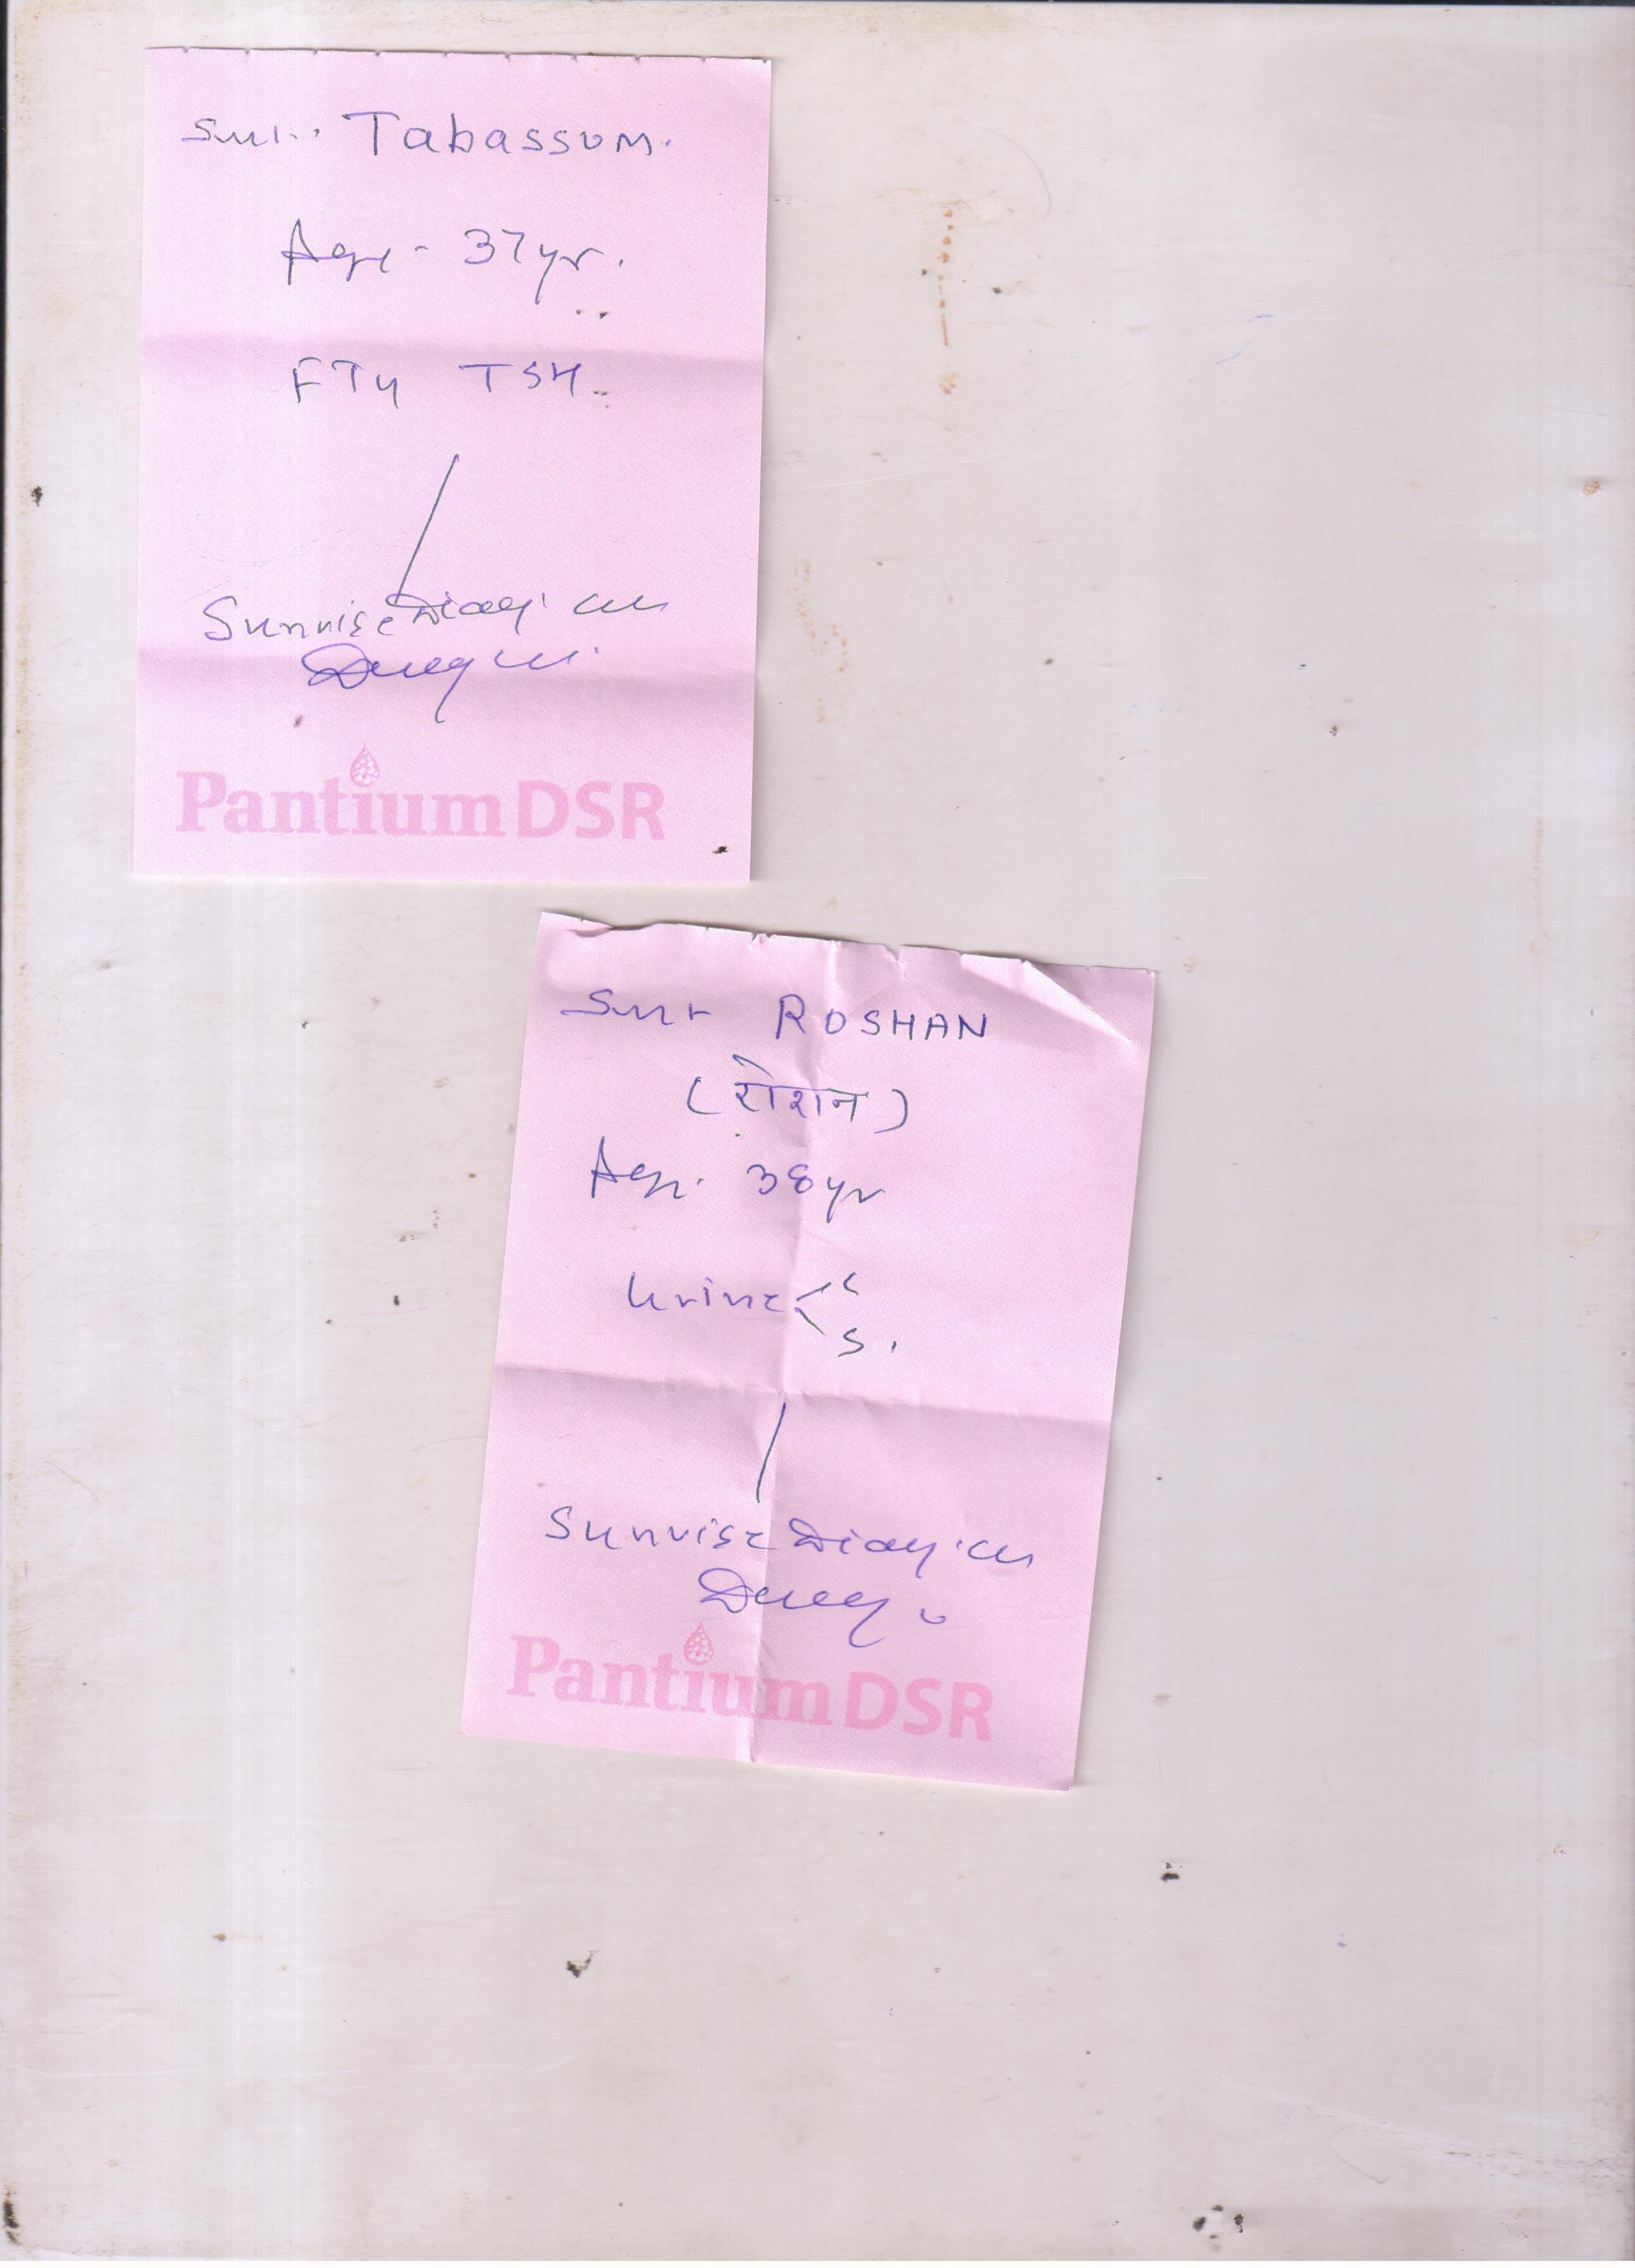 Smt. Tabassum.
Age - 37yr.
FT4 TSH.
Sunrise Diag. Cen
PantiumDSR
Smt ROSHAN
(रोशन)
Age. 38yr
Urine < C
S.
Sunrise Diag. Cen
PantiumDSR